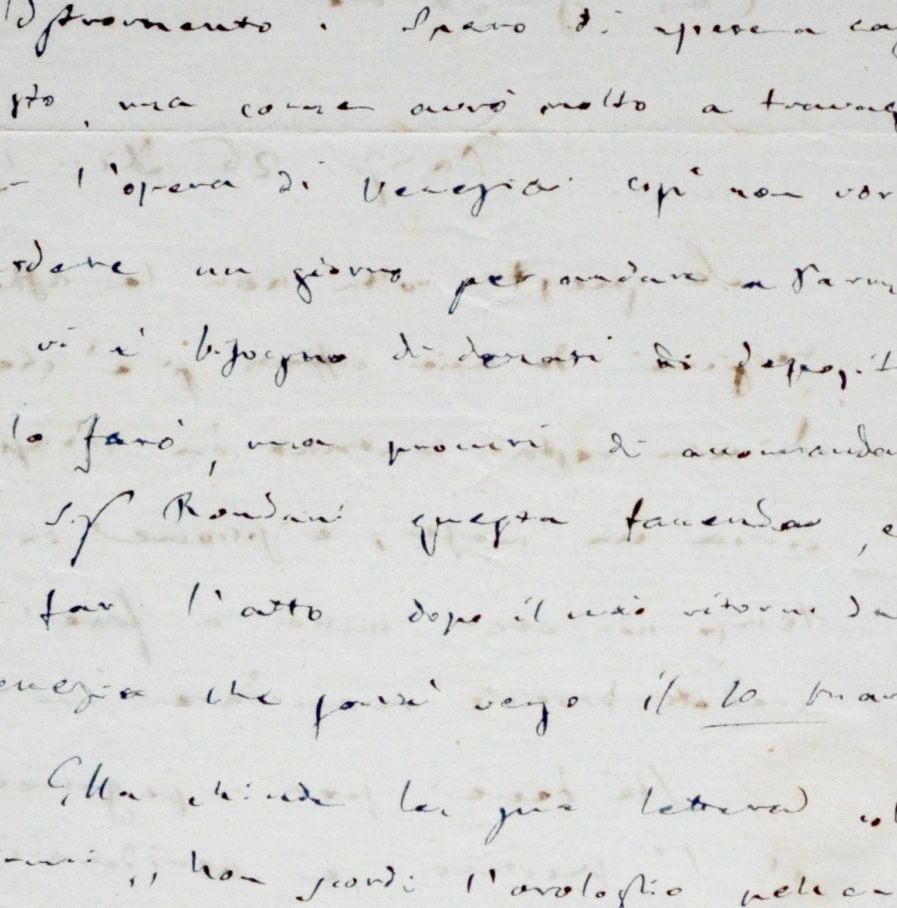 Istromento. Spero di essere a ca
sto, ma come avrò molto a trava
l'opera di Venezia così non vor
rdere un giorno per andare a Parm
vi è bisogno di denari di deposit
lo farò, ma procuri di accomanda
Sig Rondani questa faccenda, e
far l'atto dopo il mio ritorno da
enezia che sarà verso il 10 mar
Ella chiude la sua lettera col
non scordi l'orologio